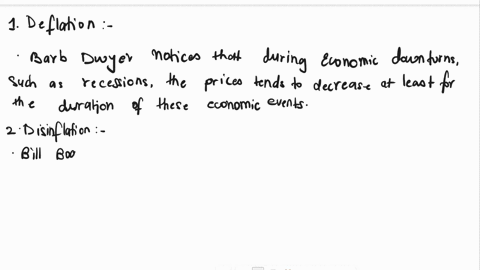 1. Deflation :-
· Barb Dwyer notices that during Economic downturns,
such as recessions, the prices tends to decrease at least for
the duration of these economic events.
2. Disinflation :-
· Bill Boo